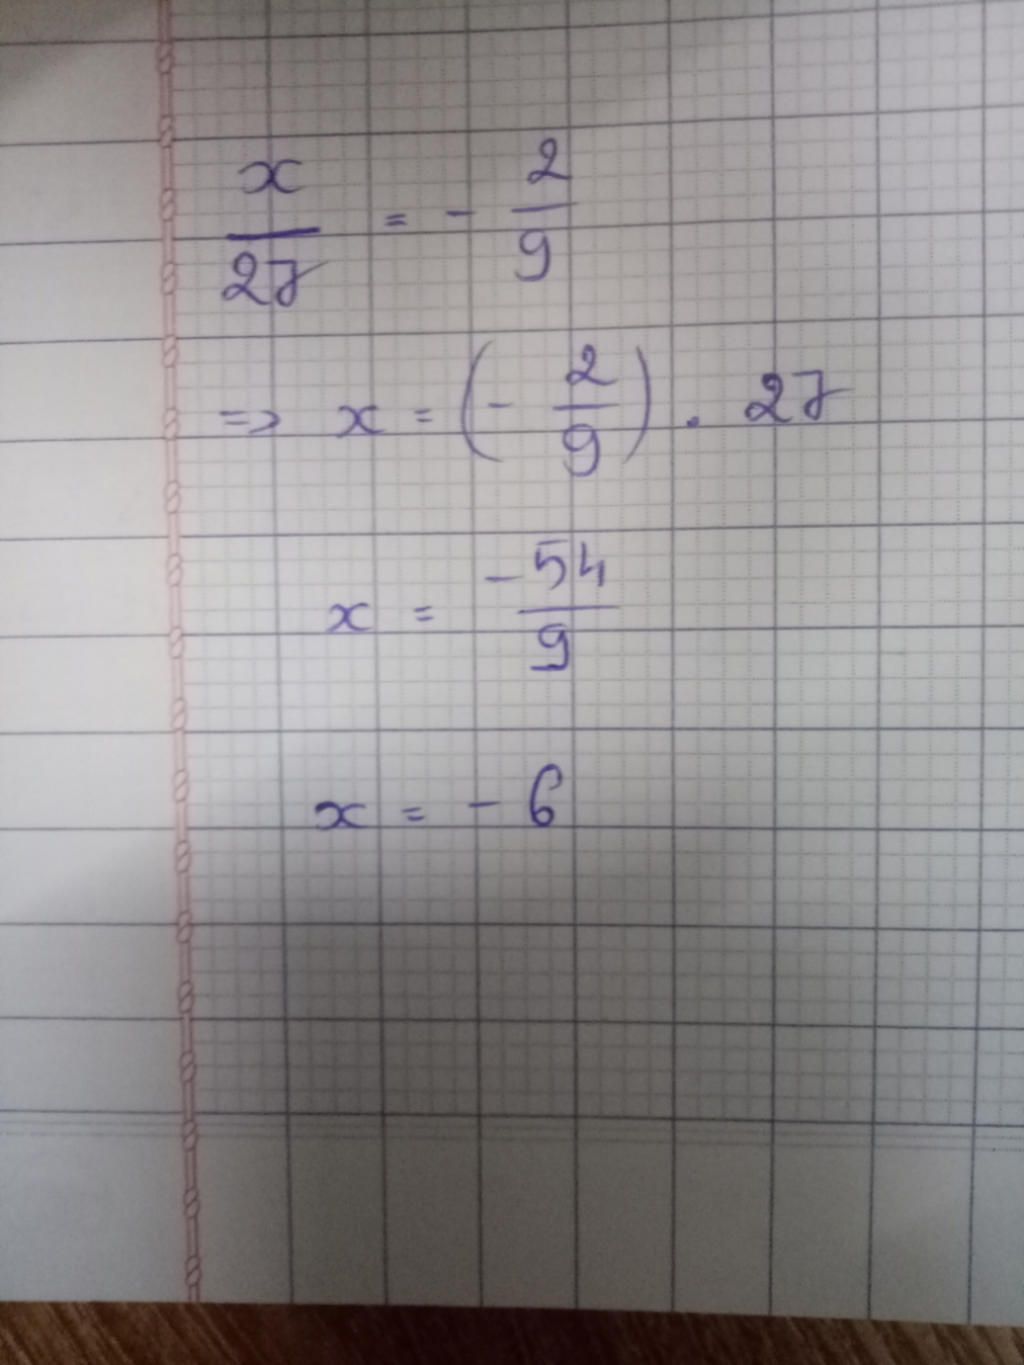 x/27 = - 2/9
=> x = (- 2/9) . 27
x = -54/9
x = - 6